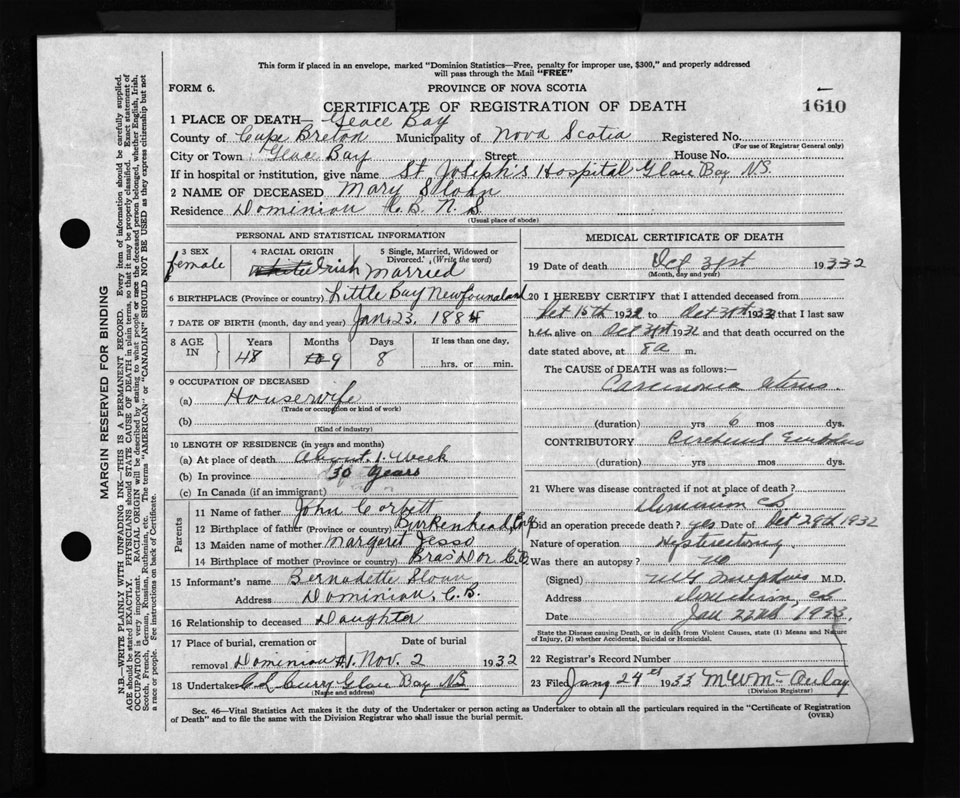 This form if placed in an envelope, marked "Dominion Statistics—Free, penalty for improper use, $300," and properly addressed
will pass through the Mail "FREE"
FORM 6.
PROVINCE OF NOVA SCOTIA
CERTIFICATE OF REGISTRATION OF DEATH
1610
1 PLACE OF DEATH— Glace Bay
County of Cape Breton Municipality of Nova Scotia Registered No.
(For use of Registrar General only)
City or Town Glace Bay Street House No.
If in hospital or institution, give name St Joseph's Hospital Glace Bay N.S.
2 NAME OF DECEASED Mary Sloan
Residence Dominion C.B. N.S.
(Usual place of abode)
PERSONAL AND STATISTICAL INFORMATION
3 SEX
female
4 RACIAL ORIGIN
White Irish
5 Single, Married, Widowed or
Divorced. (Write the word)
Married
6 BIRTHPLACE (Province or country) Little Bay Newfoundland
7 DATE OF BIRTH (month, day and year) Jan. 23, 1884
8 AGE IN
Years
48
Months
9
Days
8
If less than one day,
hrs. or min.
9 OCCUPATION OF DECEASED
(a) Housewife
(Trade or occupation or kind of work)
(b)
(Kind of industry)
10 LENGTH OF RESIDENCE (in years and months)
(a) At place of death About 1. Week
(b) In province 30 years
(c) In Canada (if an immigrant)
Parents
11 Name of father John Corbett
12 Birthplace of father (Province or country) Birkenhead, Eng
13 Maiden name of mother Margaret Jesso
14 Birthplace of mother (Province or country) Bras'Dor C.B.
15 Informant's name Bernadette Sloan
Address Dominion, C.B.
16 Relationship to deceased Daughter
17 Place of burial, cremation or Date of burial
removal Dominion #1. Nov. 2 1932
18 Undertaker C L Curry Glace Bay N.S.
(Name and address)
MEDICAL CERTIFICATE OF DEATH
19 Date of death Oct 31st 1932
(Month, day and year)
20 I HEREBY CERTIFY that I attended deceased from
Oct 15th 1932 to Oct 31st 1932 that I last saw
her alive on Oct 31st 1932 and that death occurred on
date stated above, at 8 a m.
The CAUSE of DEATH was as follows:—
Carcinoma uterus
(duration) yrs 6 mos dys.
CONTRIBUTORY Cerebral Embolus
(duration) yrs. mos. dys.
21 Where was disease contracted if not at place of death?
Dominion C.B.
Did an operation precede death? yes Date of Oct 29th 1932
Nature of operation Hysterectomy
Was there an autopsy? no
(Signed) M.D.
Address Dominion, CB
Date Jan 22nd, 1933.
State the Disease causing Death, or in death from Violent Causes, state (1) Means and Nature
of Injury, (2) whether Accidental, Suicidal or Homicidal.
22 Registrar's Record Number
23 Filed Jany 24th 1933 M W McAulay
(Division Registrar)
Sec. 46—Vital Statistics Act makes it the duty of the Undertaker or person acting as Undertaker to obtain all the particulars required in the "Certificate of Registration
of Death" and to file the same with the Division Registrar who shall issue the burial permit.
(OVER)
MARGIN RESERVED FOR BINDING
N.B.—WRITE PLAINLY WITH UNFADING INK—THIS IS A PERMANENT RECORD. Every item of information should be carefully supplied.
AGE should be stated EXACTLY. PHYSICIANS should STATE CAUSE OF DEATH in plain terms, so that it may be properly classified. Exact statement of
OCCUPATION is very important. RACIAL ORIGIN will be described by stating to what people or race the deceased person belonged, whether English, Irish,
Scotch, French, German, Russian, Ruthenian, etc. The terms "AMERICAN" or "CANADIAN" SHOULD NOT BE USED as they express citizenship but not
a race or people. See instructions on back of Certificate.